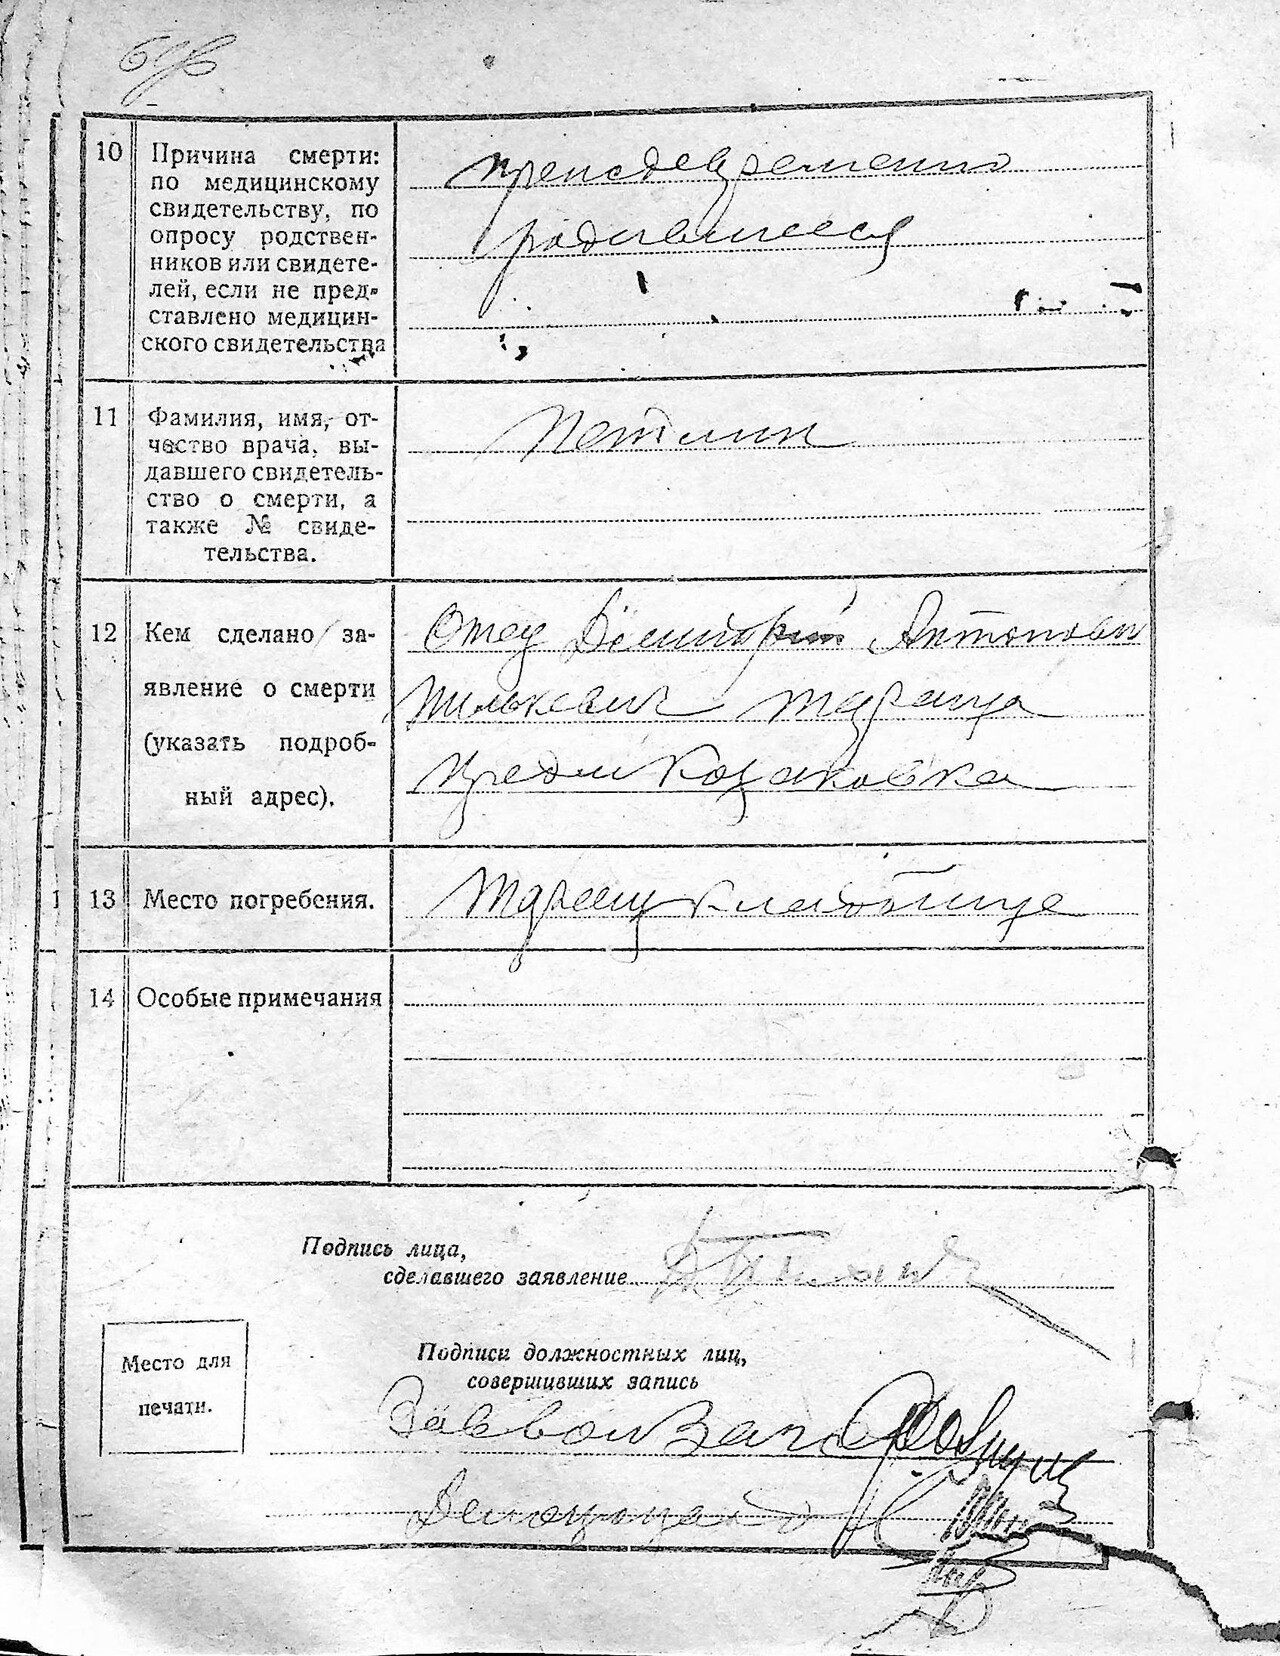 10
Причина смерти:
по медицинскому
свидетельству, по
опросу родствен-
ников или свидете-
лей, если не пред-
ставлено медицин-
ского свидетельства
преждевременно
родившееся
11
Фамилия, имя, от-
чество врача, вы-
давшего свидетель-
ство о смерти, а
также № свиде-
тельства.
12
Кем сделано за-
явление о смерти
(указать подроб-
ный адрес).
Отец Дмитрий Антонович
Тараща
Казаковка
13
Место погребения.
Таращ кладбище
14
Особые примечания
Подпись лица,
сделавшего заявление
Место для
печати.
Подписи должностных лиц,
совершивших запись